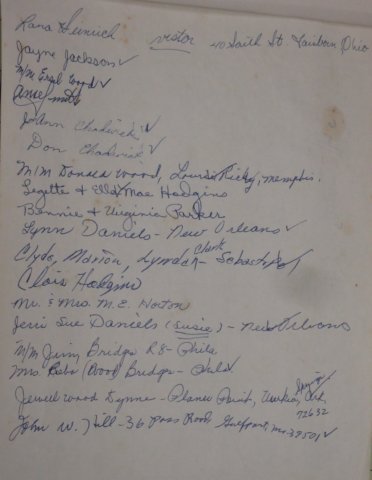 Lana Heinrich visitor 40 Faith St. Fairborn Ohio
Jayne Jackson ✓
M/M Ersel Wood ✓
Smith
JoAnn Chadwick ✓
Don Chadwick ✓
M/M Donald Wood, Louise, Ricky, Memphis.
Legette & Ella Mae Hodgins
Bennie & Virginia Parker
Lynn Daniels - New Orleans ✓
Clyde, Marion, Lyndan Clark - 
Clois Hodgins
Mr. & Mrs. M. E. Horton
Jerri Sue Daniels (Susie) - New Orleans
M/M Jim Bridges R8 - Phila
Mrs Reba (Wood) Bridges - Phila ✓
Jewell Wood Lynne - Ark. ✓
72632
John W. Hill - 36 Pass Road, Gulfport, Ms 39501 ✓